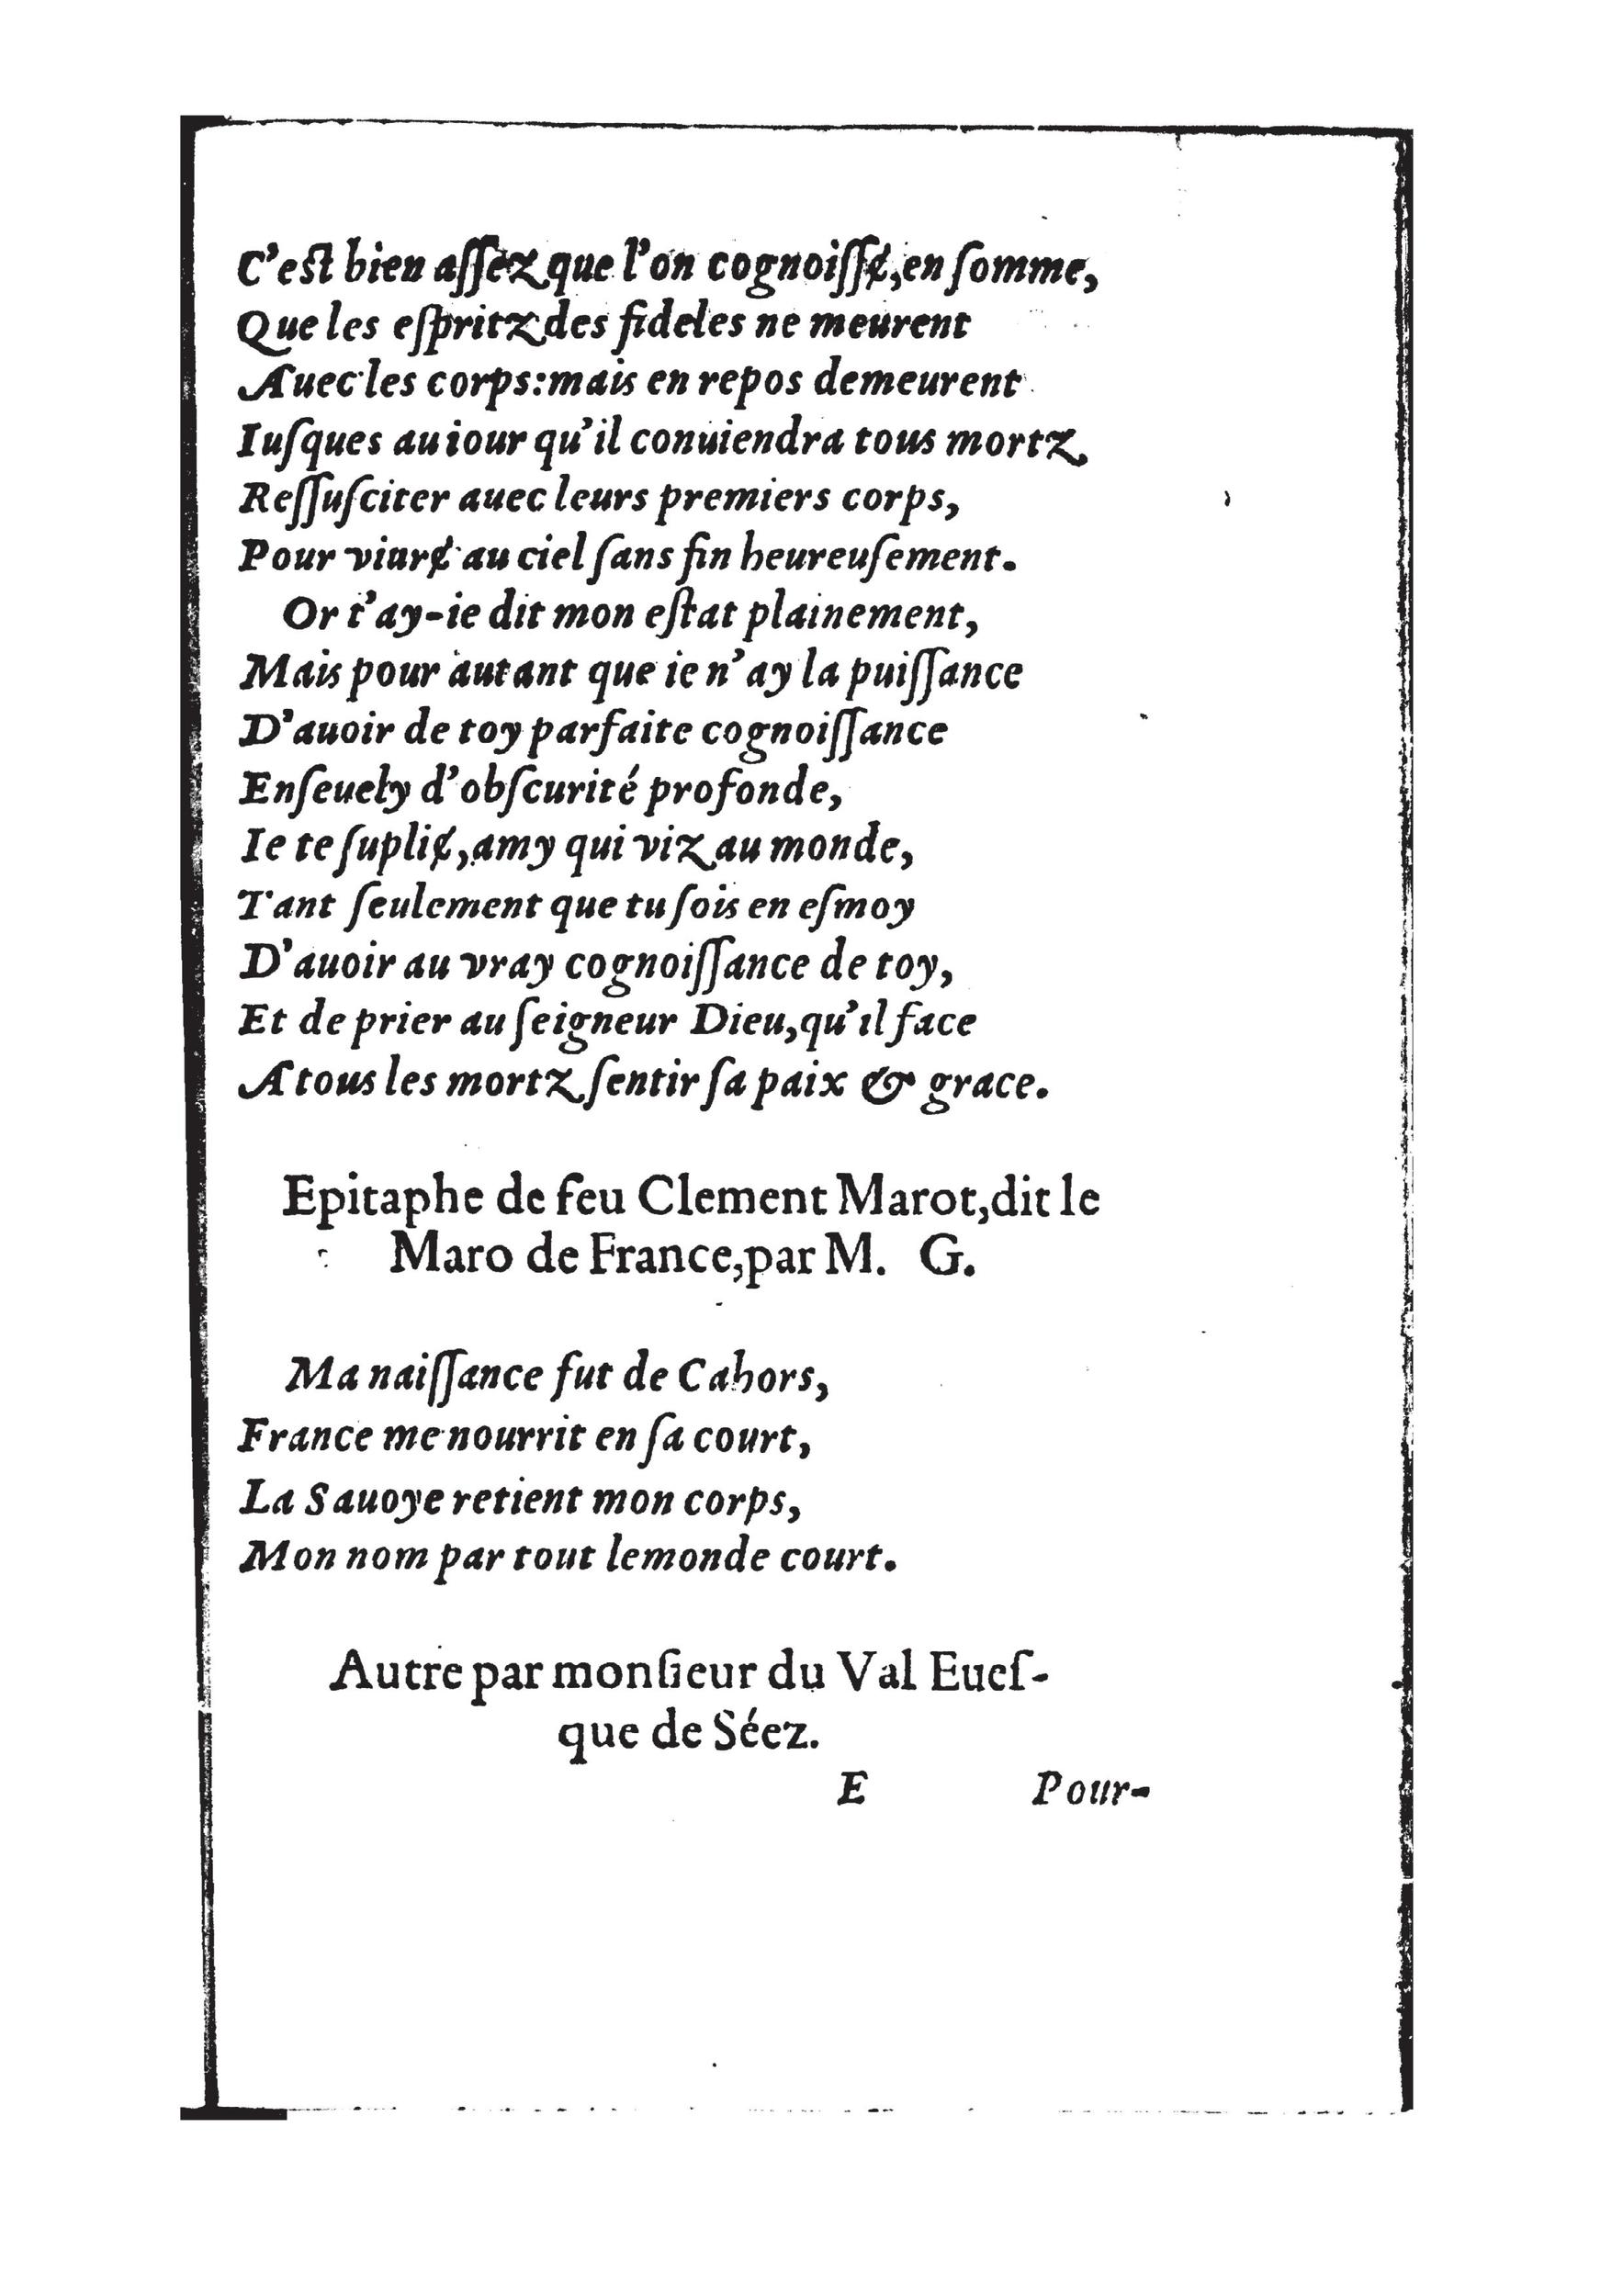 C'eſt bien aſſez que l'on cognoiſſɇ, en ſomme,
Que les eſpritz des fideles ne meurent
Auec les corps: mais en repos demeurent
Iuſques au iour qu'il conuiendra tous mortz
Reſſuſciter auec leurs premiers corps,
Pour viurɇ au ciel ſans fin heureuſement.
Or t'ay-ie dit mon eſtat plainement,
Mais pour autant que ie n'ay la puiſſance
D'auoir de toy parfaite cognoiſſance
Enſeuely d'obſcurité profonde,
Ie te ſupliɇ, amy qui viz au monde,
Tant ſeulement que tu ſois en eſmoy
D'auoir au vray cognoiſſance de toy,
Et de prier au ſeigneur Dieu, qu'il face
A tous les mortz ſentir ſa paix & grace.
Epitaphe de feu Clement Marot, dit le
Maro de France, par M. G.
Ma naiſſance fut de Cahors,
France me nourrit en ſa court,
La Sauoye retient mon corps,
Mon nom par tout le monde court.
Autre par monſieur du Val Eueſ-
que de Séez.
E Pour-